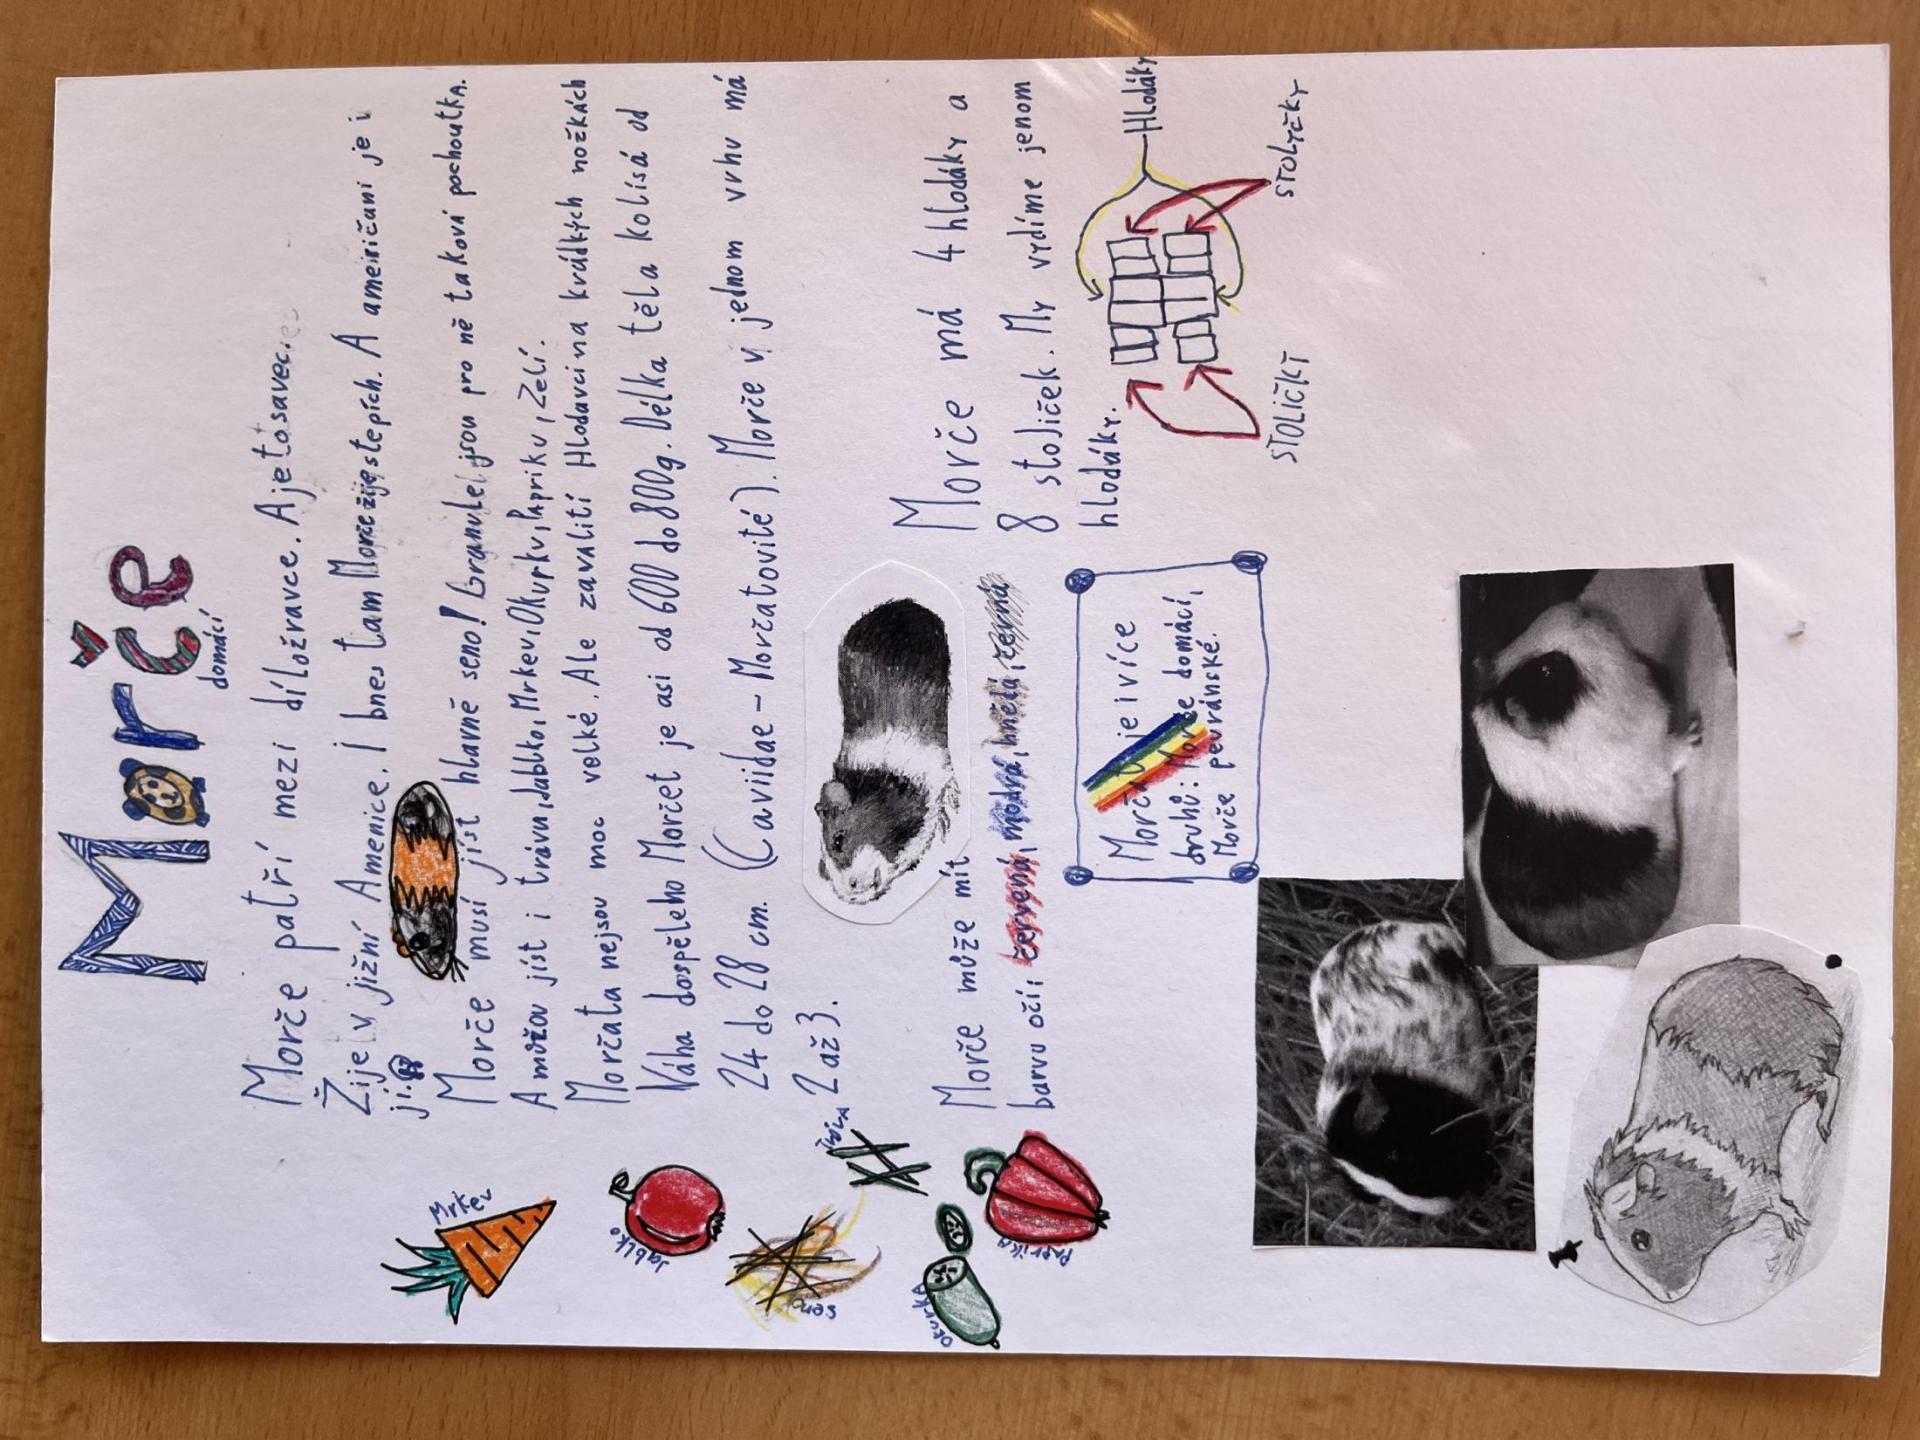 Morče
domácí
Morče patří mezi díložravce. A je to savec.
Žije v jižní Americe. I bnes tam Morče žije, stepích. A ameiričani je i
jí.
Morče musí jíst hlavně seno! Granule jsou pro ně taková pochoutkA.
A můžou jíst i trávu, Jablko, Mrkev, Okurku, Papriku, Zelí.
Morčata nejsou moc volké. Ale zavalití Hlodavci na krádkých nožkách
Váha dospěleho Morčet je asi od 600 do 800g. Délka těla kolísá od
24 do 28 cm. (Caviidae - Morčatovité). Morče v jednom vrhu má
2 až 3.
Morče může mít
barvu očí: červená, modrá, hnědá, černá
Morčat je více
druhů: Morče domácí,
Morče peruánské.
Morče má 4 hlodáky a
8 stoliček. My vydíme jenom
hlodáky.
Hlodáky
STOLIČKY
STOLIČKY
Mrkev
Jablko
seno
okurka
PAPrikA